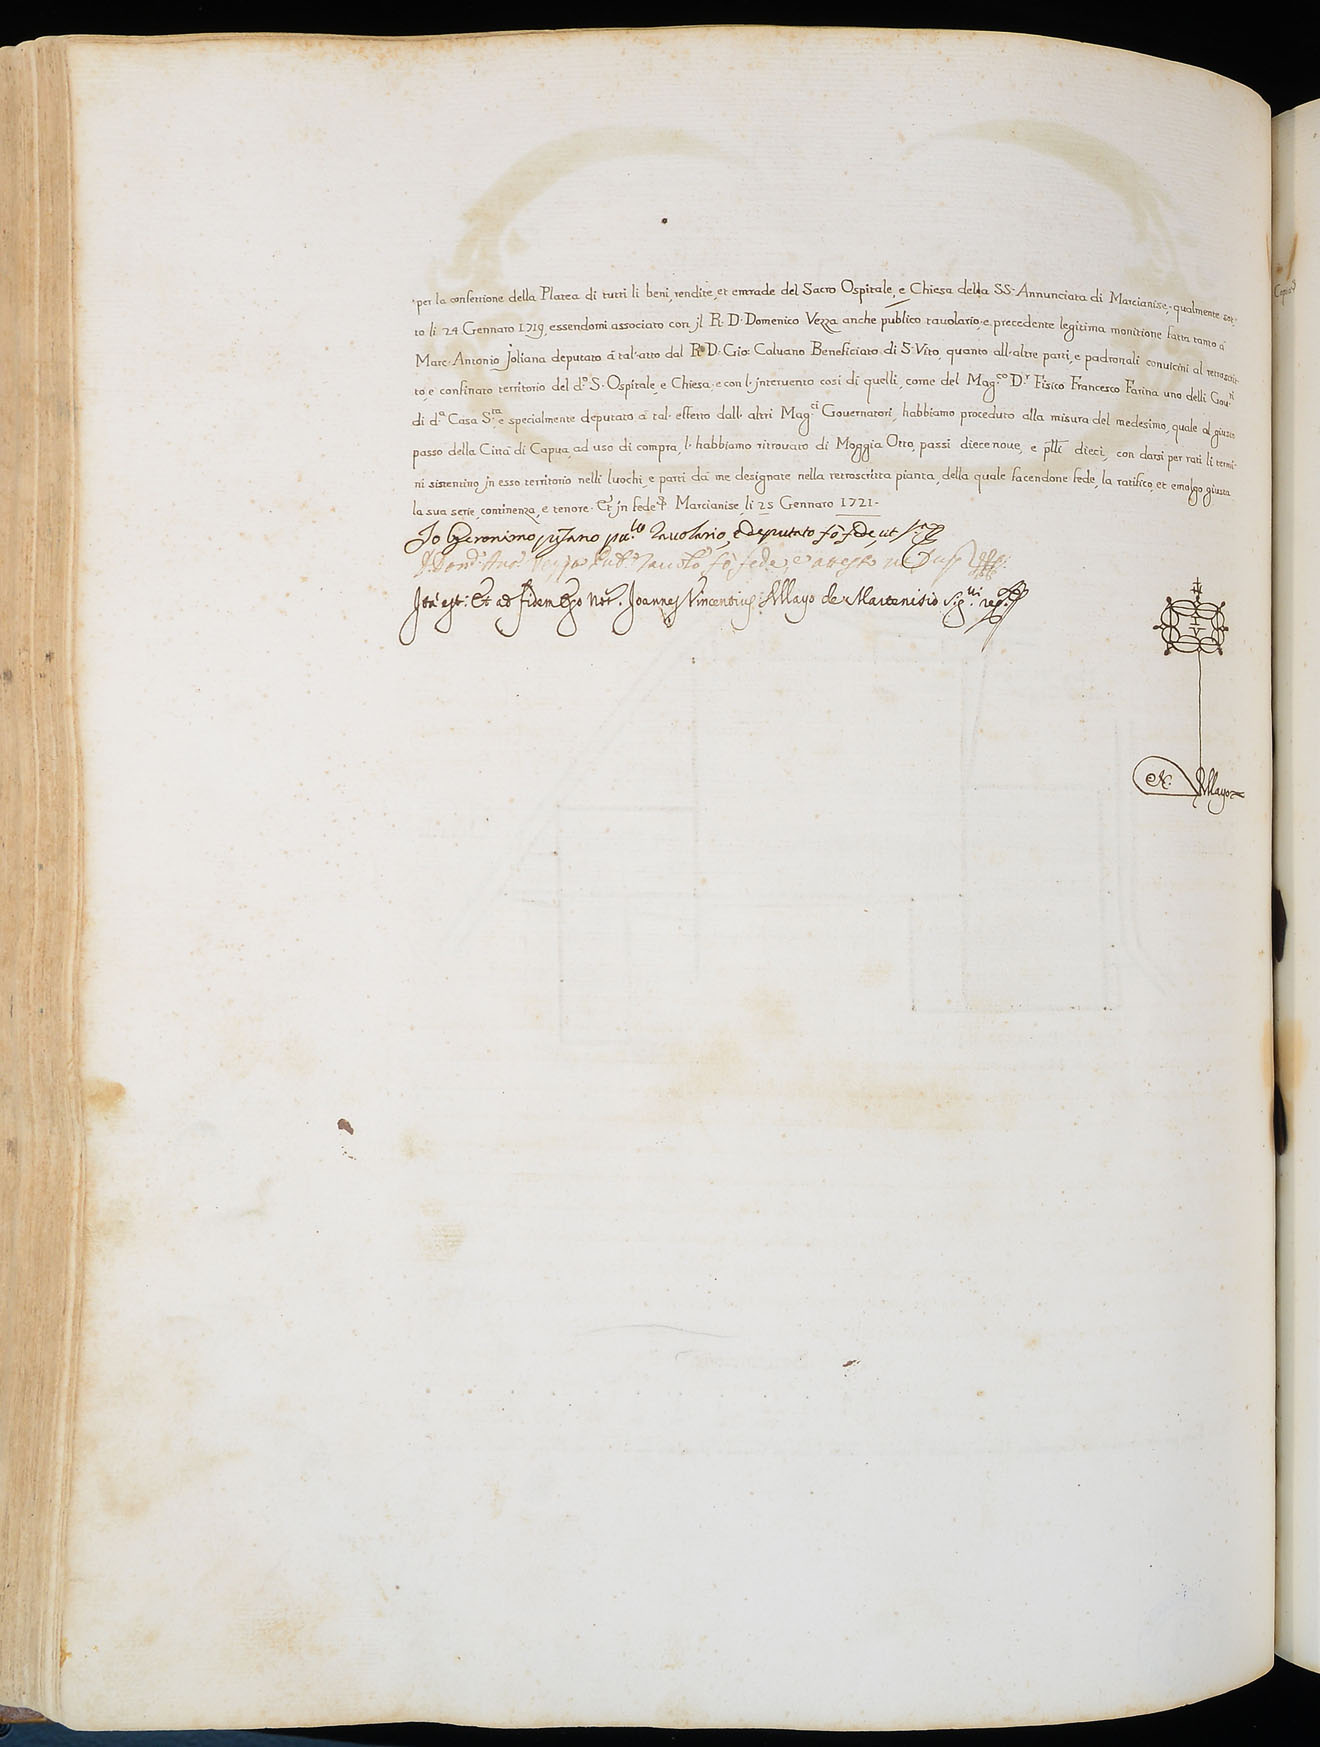 per la confettione della Platea di tutti li beni, rendite, et entrade del Sacro Ospitale, e Chiesa della SS. Annunciata di Marcianise, qualmente sot-
to li 24 Gennaro 1719, essendomi associato con jl R. D. Domenico Vezza anche publico tauolario, e precedente legitima monitione fatta tanto à
Marc. Antonio Joliana deputato à tal'atto dal R. D. Gio: Caluano Beneficiato di S. Vito, quanto all'altre parti, e padronali conuicini al retroscrit-
to, e confinato territorio del d.º S. Ospitale, e Chiesa, e con l'jnteruento così di quelli, come del Mag.co D.r Fisico Francesco Farina uno delli Gou.ri
di d.ª Casa S.ta, e specialmente deputato à tal'effetto dall'altri Mag.ci Gouernatori, habbiamo proceduto alla misura del medesimo, quale al giusto
passo della Città di Capua, ad uso di compra, l'habbiamo ritrouato di Moggia Otto, passi diecenoue, e p̃lli dieci, con darsi per rati li termi-
ni sistentino jn esso territorio nelli luochi, e parti dà me designate nella retroscritta pianta, della quale facendone fede, la ratifico, et emolgo giusta
la sua serie, continenza, e tenore. Et jn fede &. Marcianise, li 25 Gennaro 1721.
Io Geronimo pu.co Tauolario, e deputato fò fede, ut s.ª
D. Dom.º Ant.º Vezza Pub.º Tauol.º fò fede, e attesto ut sup.
Ità est: Et ad fidem Ego Not. Joannes Vincentius Allayo de Martenisio sig.ui reg.
I V
N. Allayo
Copia